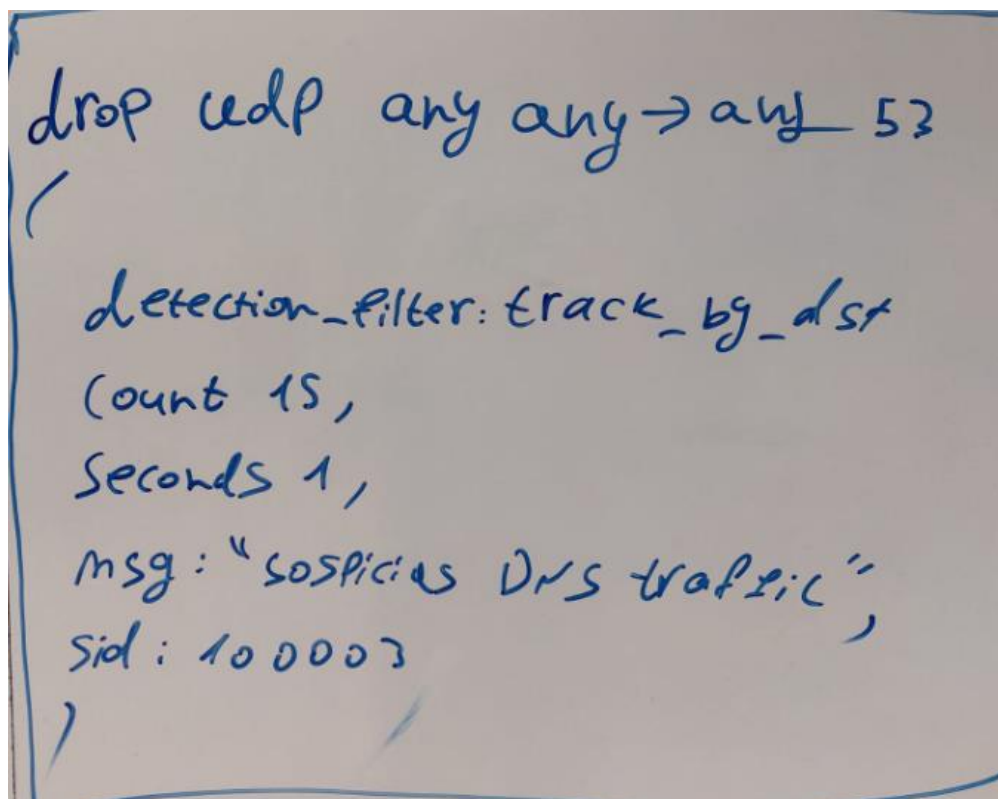 drop udp any any → any 53
(
detection_filter: track_by_dst
count 15,
seconds 1,
msg: "sospicias DNS traffic",
sid: 100003
)